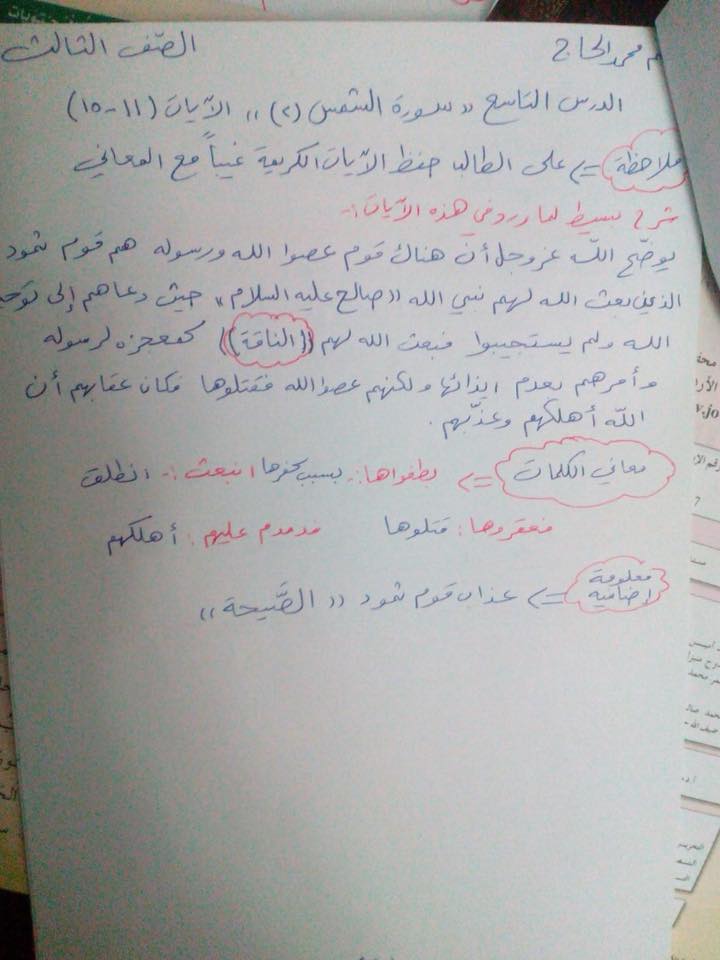 م محمد الحاج الصف الثالث
الدرس التاسع " سورة الشمس (٢) " الآيات (١١-١٥)
ملاحظة => على الطالب حفظ الآيات الكريمة غيباً مع المعاني
شرح بسيط لما ورد في هذه الآيات :-
يوضّح الله عز وجل أن هناك قوم عصوا الله ورسوله هم قوم ثمود
الذين بعث الله لهم نبي الله " صالح عليه السلام " حيث دعاهم إلى توحيد
الله ولم يستجيبوا فبعث الله لهم ((الناقة)) كمعجزه لرسوله
وأمرهم بعدم ايذائها ولكنهم عصوا الله فقتلوها فكان عقابهم أن
الله أهلكهم وعذّبهم .
معاني الكلمات => بطغواها :- بسبب كفرها انبعث :- انطلق
فعقروها : قتلوها فدمدم عليهم : أهلكهم
معلومة
إضافية => عذاب قوم ثمود " الصَّيحة "